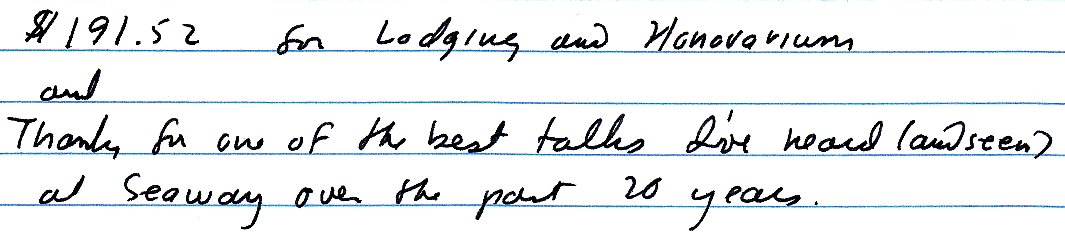 $191.52 for Lodging and Honorarium
and
Thanks for one of the best talks I've heard (and seen)
at Seaway over the past 20 years.